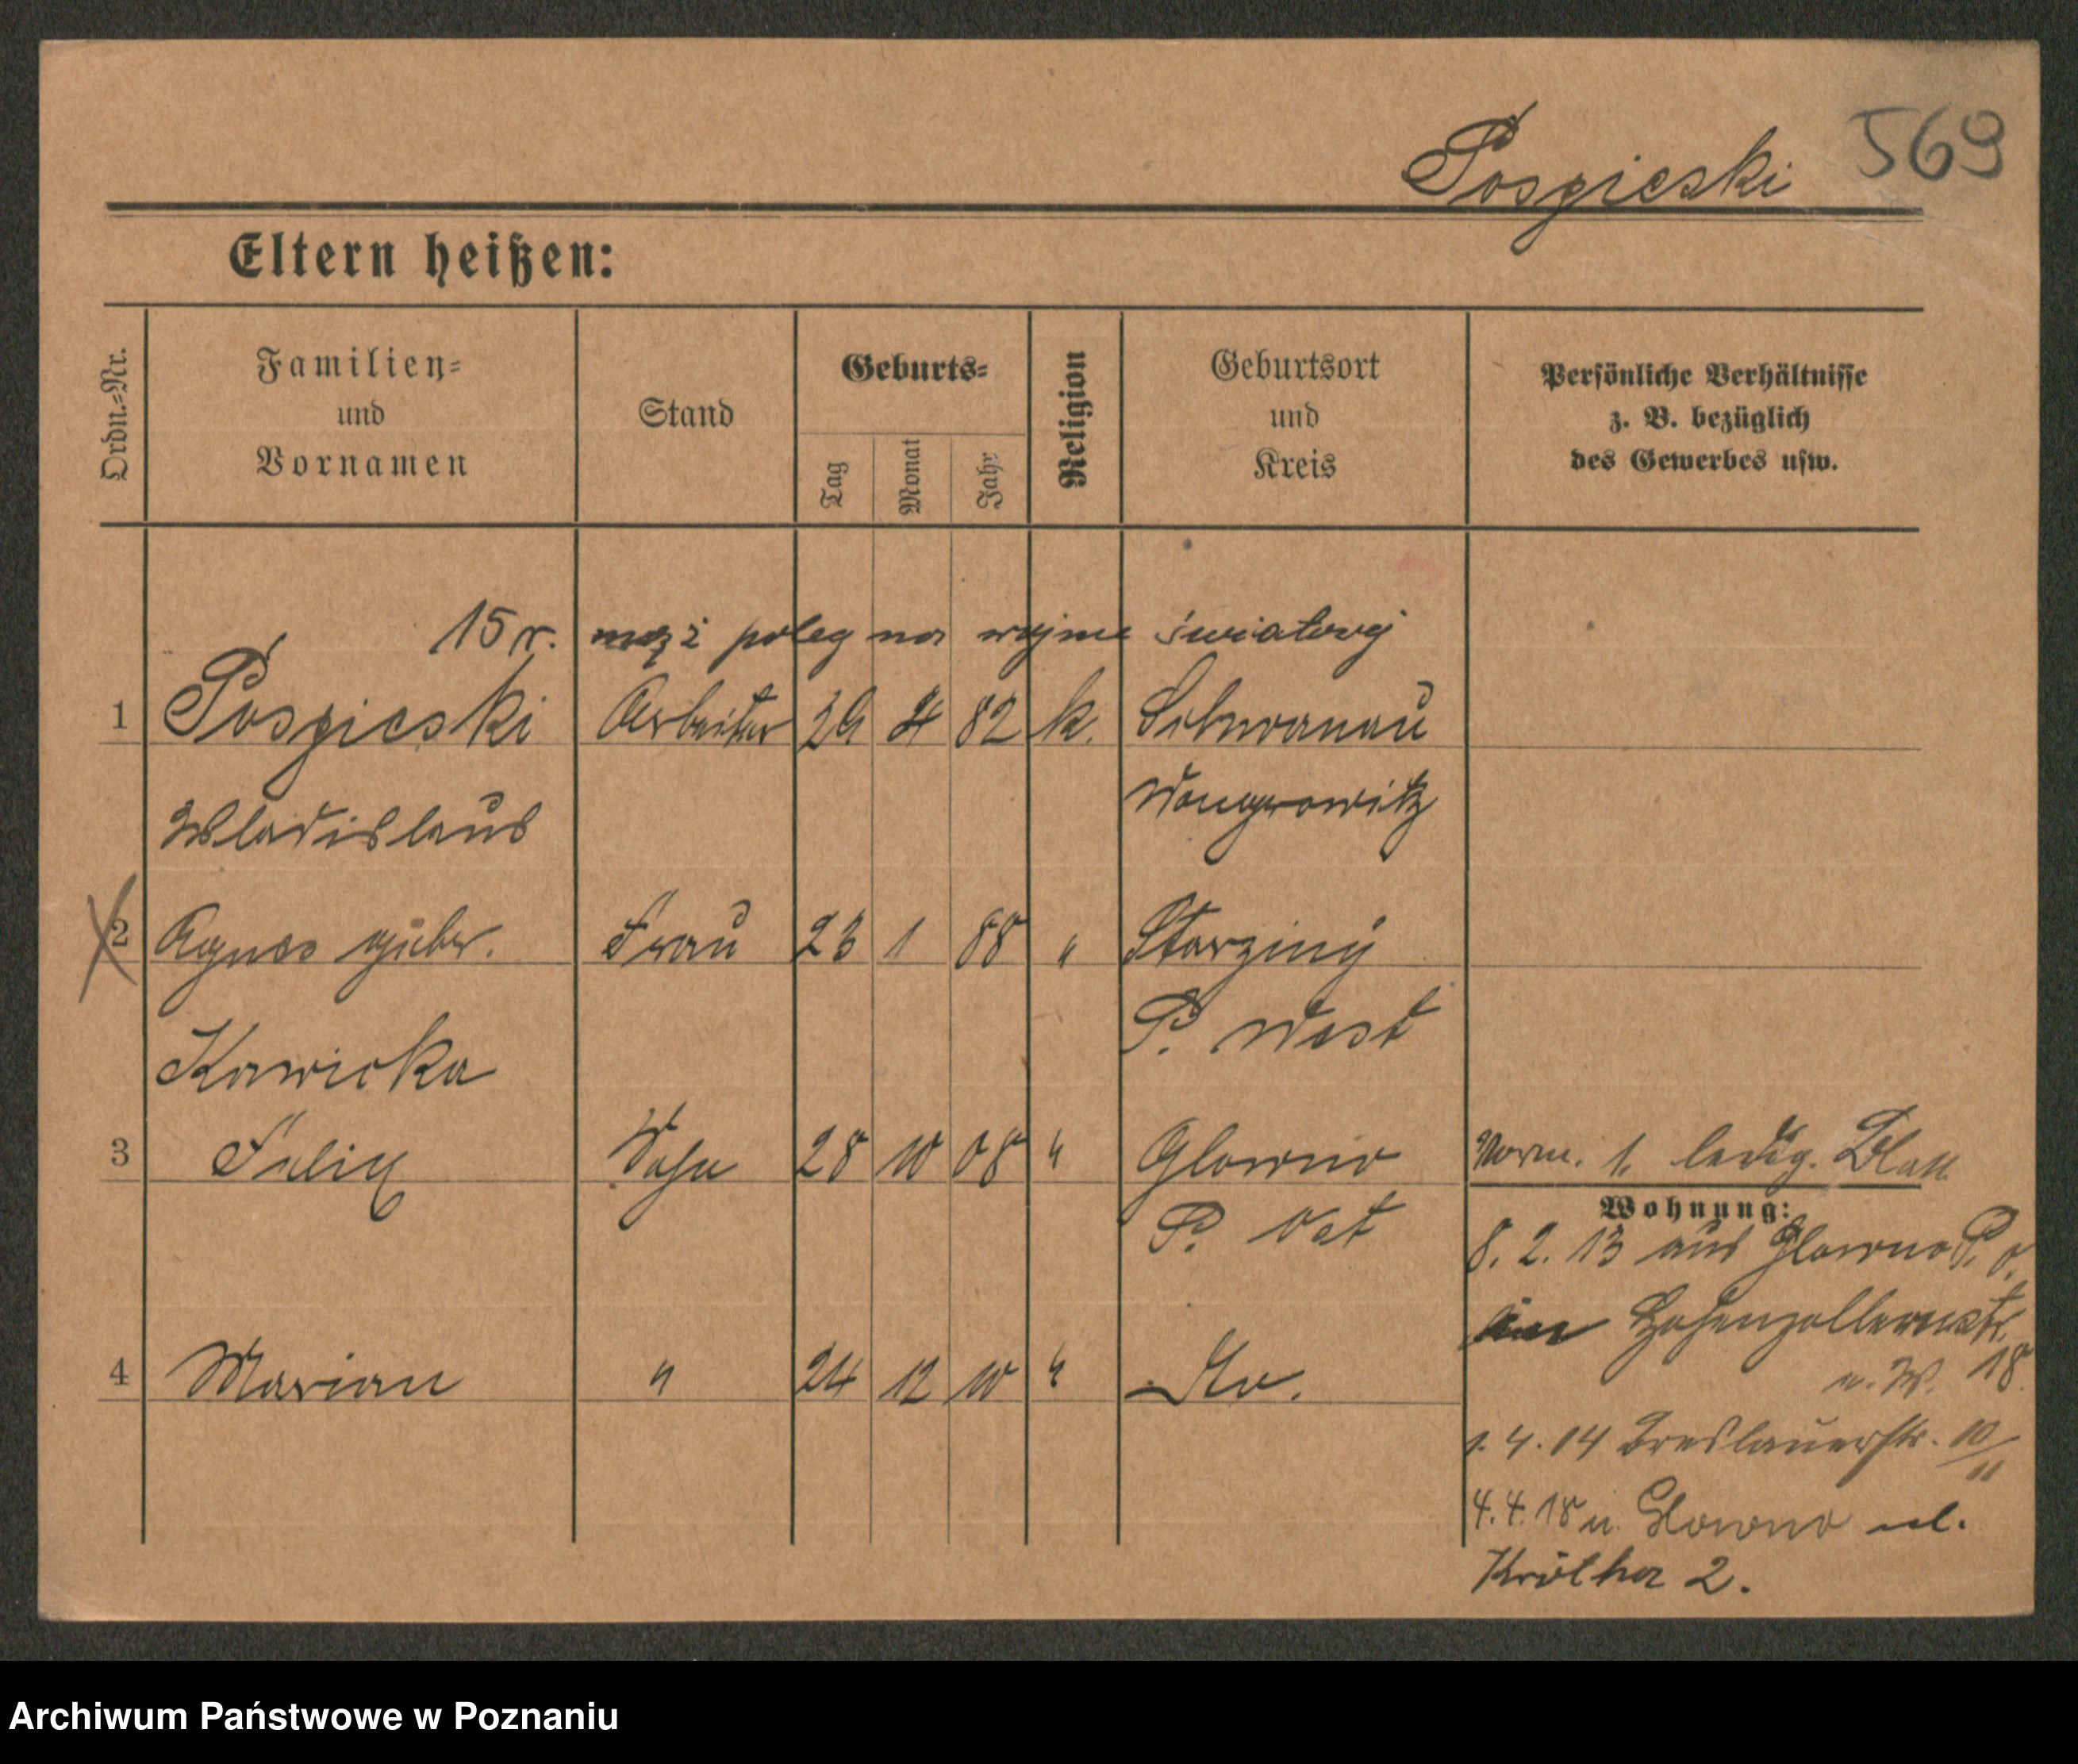 Pospieski 569
Eltern heißen:
Ordn.=Nr.
Familien=
und
Vornamen
Stand
Geburts=
Tag
Monat
Jahr
Religion
Geburtsort
und
Kreis
Persönliche Verhältnisse
z. B. bezüglich
des Gewerbes usw.
15 r. mąż poleg na wojnie światowej
1 Pospieski Arbeiter 29 4 82 k. Schwanau
Wladislaus Wongrowitz
2 Agnes gebr. Frau 23 1 88 " Starziny
P. West
Kawicka
3 Felix Sohn 28 10 08 " Glowno
P. Ost
Verm. 1. ledig. Blatt
Wohnung:
8. 2. 13 aus Glowno P. O.
Hohenzollernstr.
n. W. 18
4 Marian " 24 12 10 "
1. 4. 14 Breslauerstr. 10/11
4. 4. 18 n. Glowno ul.
Krótka 2.
Archiwum Państwowe w Poznaniu